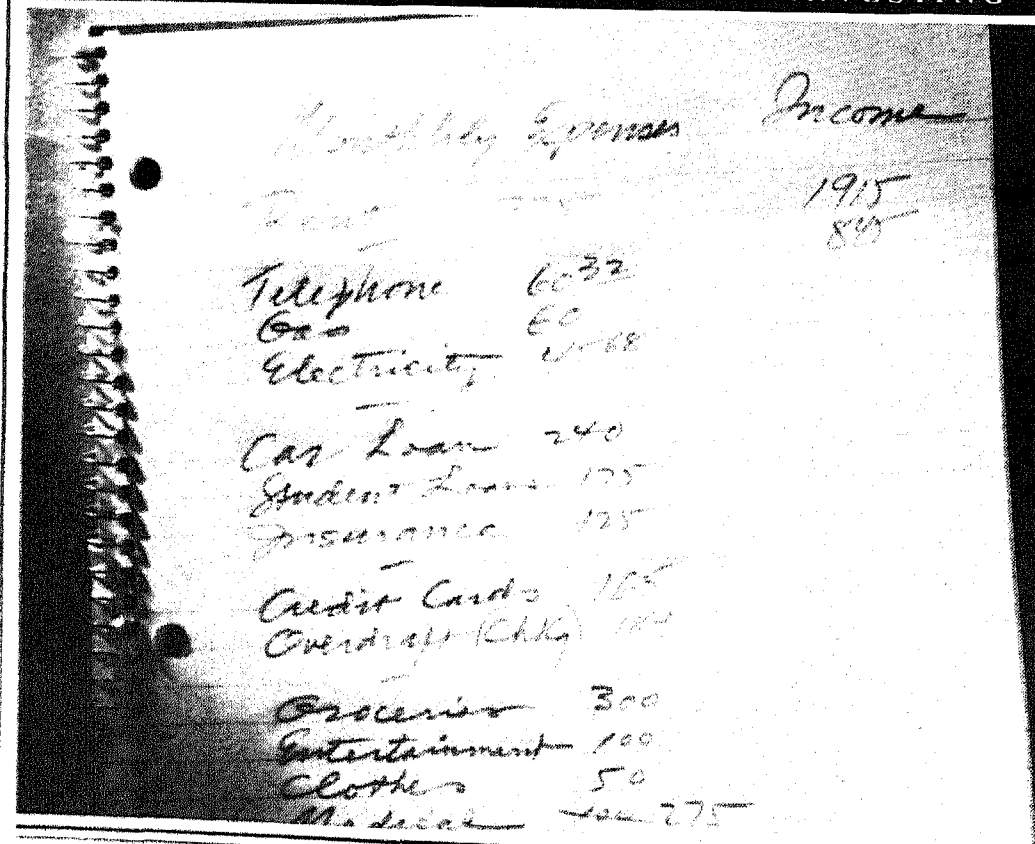 Monthly Expenses Income
Rent 1915
845
Telephone 60 32
Gas 60
Electricity 68
Car Loan 240
Student Loans 175
Insurance 125
Credit Cards 165
Overdraft (Chkg)
Groceries 300
Entertainment 100
Clothes 50
Medical 275